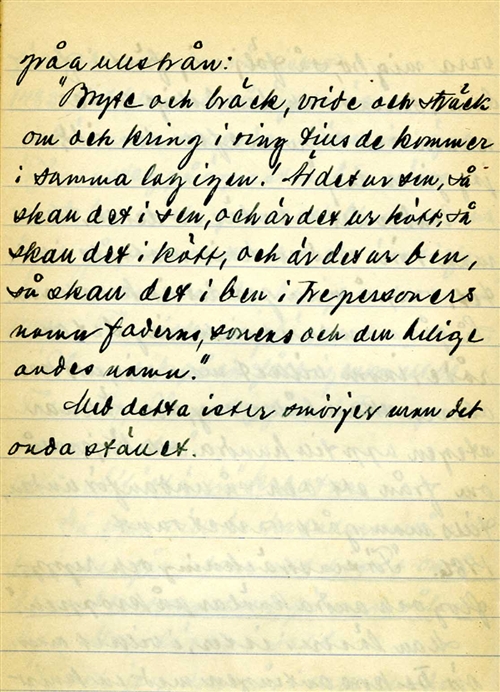 på a ullstrån:
"Bryte och bräck, vride och sträck
om och kring i ring tius de kommer
i samma lag igen." Är det ur sen, så
skall det i sen, och är det ur kött, så
skall det i kött, och är det ur ben,
så skall det i ben i Trepersoners
namn faderns, sonens och den helige
andes namn."
Med detta ister smörjer man det
onda stället.